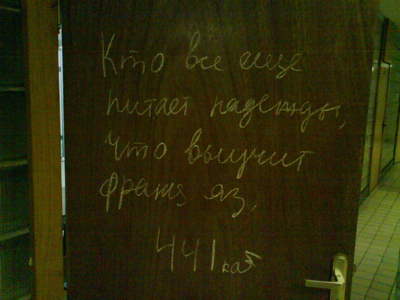 Кто все еще
питает надежды,
что выучит
франц яз.
441 каб